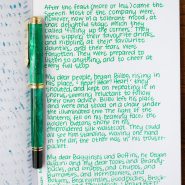 After the feast (more or less) came the
Speech. Most of the company were,
however, now in a tolerant mood, at
that delightful stage which they
called "filling up the corners". They
were sipping their favourite drinks,
and nibbling at their favourite
dainties, and their fears were
forgotten. They were prepared to
listen to anything, and to cheer at
every full stop.
My dear people, began Bilbo, rising in
his place. "Hear! Hear! Hear!" they
shouted, and kept on repeating it in
chorus, seeming reluctant to follow
their own advice. Bilbo left his place
and went and stood on a chair under
the illuminated tree. The light of the
lanterns fell on his beaming face; the
golden buttons shone on his
embroidered silk waistcoat. They could
all see him standing, waving one hand
in the air, the other was in his trouser-
pocket.
My dear Bagginses and Boffins, he began
again; and my dear Tooks and Brandy-
bucks, and Grubbs, and Chubbs, and
Burrowses, and Hornblowers, and
Bolgers, Bracegirdles, Goodbodies, Brock-